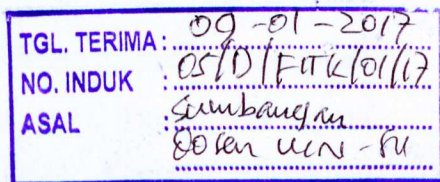 TGL. TERIMA : 09-01-2017
NO. INDUK : 05/D/FITK/01/17
ASAL : Sumbangan
Dosen UIN-SU